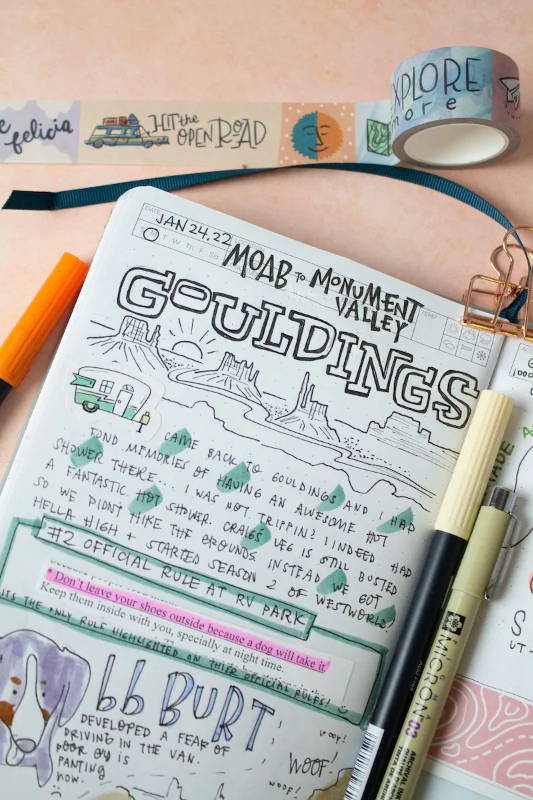 e felicia
HIT the
OPEN ROAD
EXPLORE
more
DATE
JAN 24.22
M T W Th F Sa
MOAB TO MONUMENT
VALLEY
TEMP
GOULDINGS
FOND MEMORIES CAME BACK TO GOULDINGS AND I HAD
SHOWER THERE... I WAS OF HAVING AN AWESOME HOT
A FANTASTIC HOT SHOWER. NOT TRIPPIN? I INDEED HAD
SO WE DIDN'T HIKE THE CRAIGS LEG IS STILL BUSTED
HELLA HIGH + STARTED GROUNDS INSTEAD WE GOT
SEASON 2 OF WESTWORLD.
#2 OFFICIAL RULE AT RV PARK
* Don't leave your shoes outside because a dog will take it
Keep them inside with you, specially at night time.
ITS THE ONLY RULE HIGHLIGHTED ON THIER OFFICIAL RULES!
bb BURT
DEVELOPED A FEAR OF
DRIVING IN THE VAN.
POOR GUY IS
PANTING
NOW.
WOOF!
WOOF!
MICRON 03
ARCHIVAL INK
RADE
S
UT-